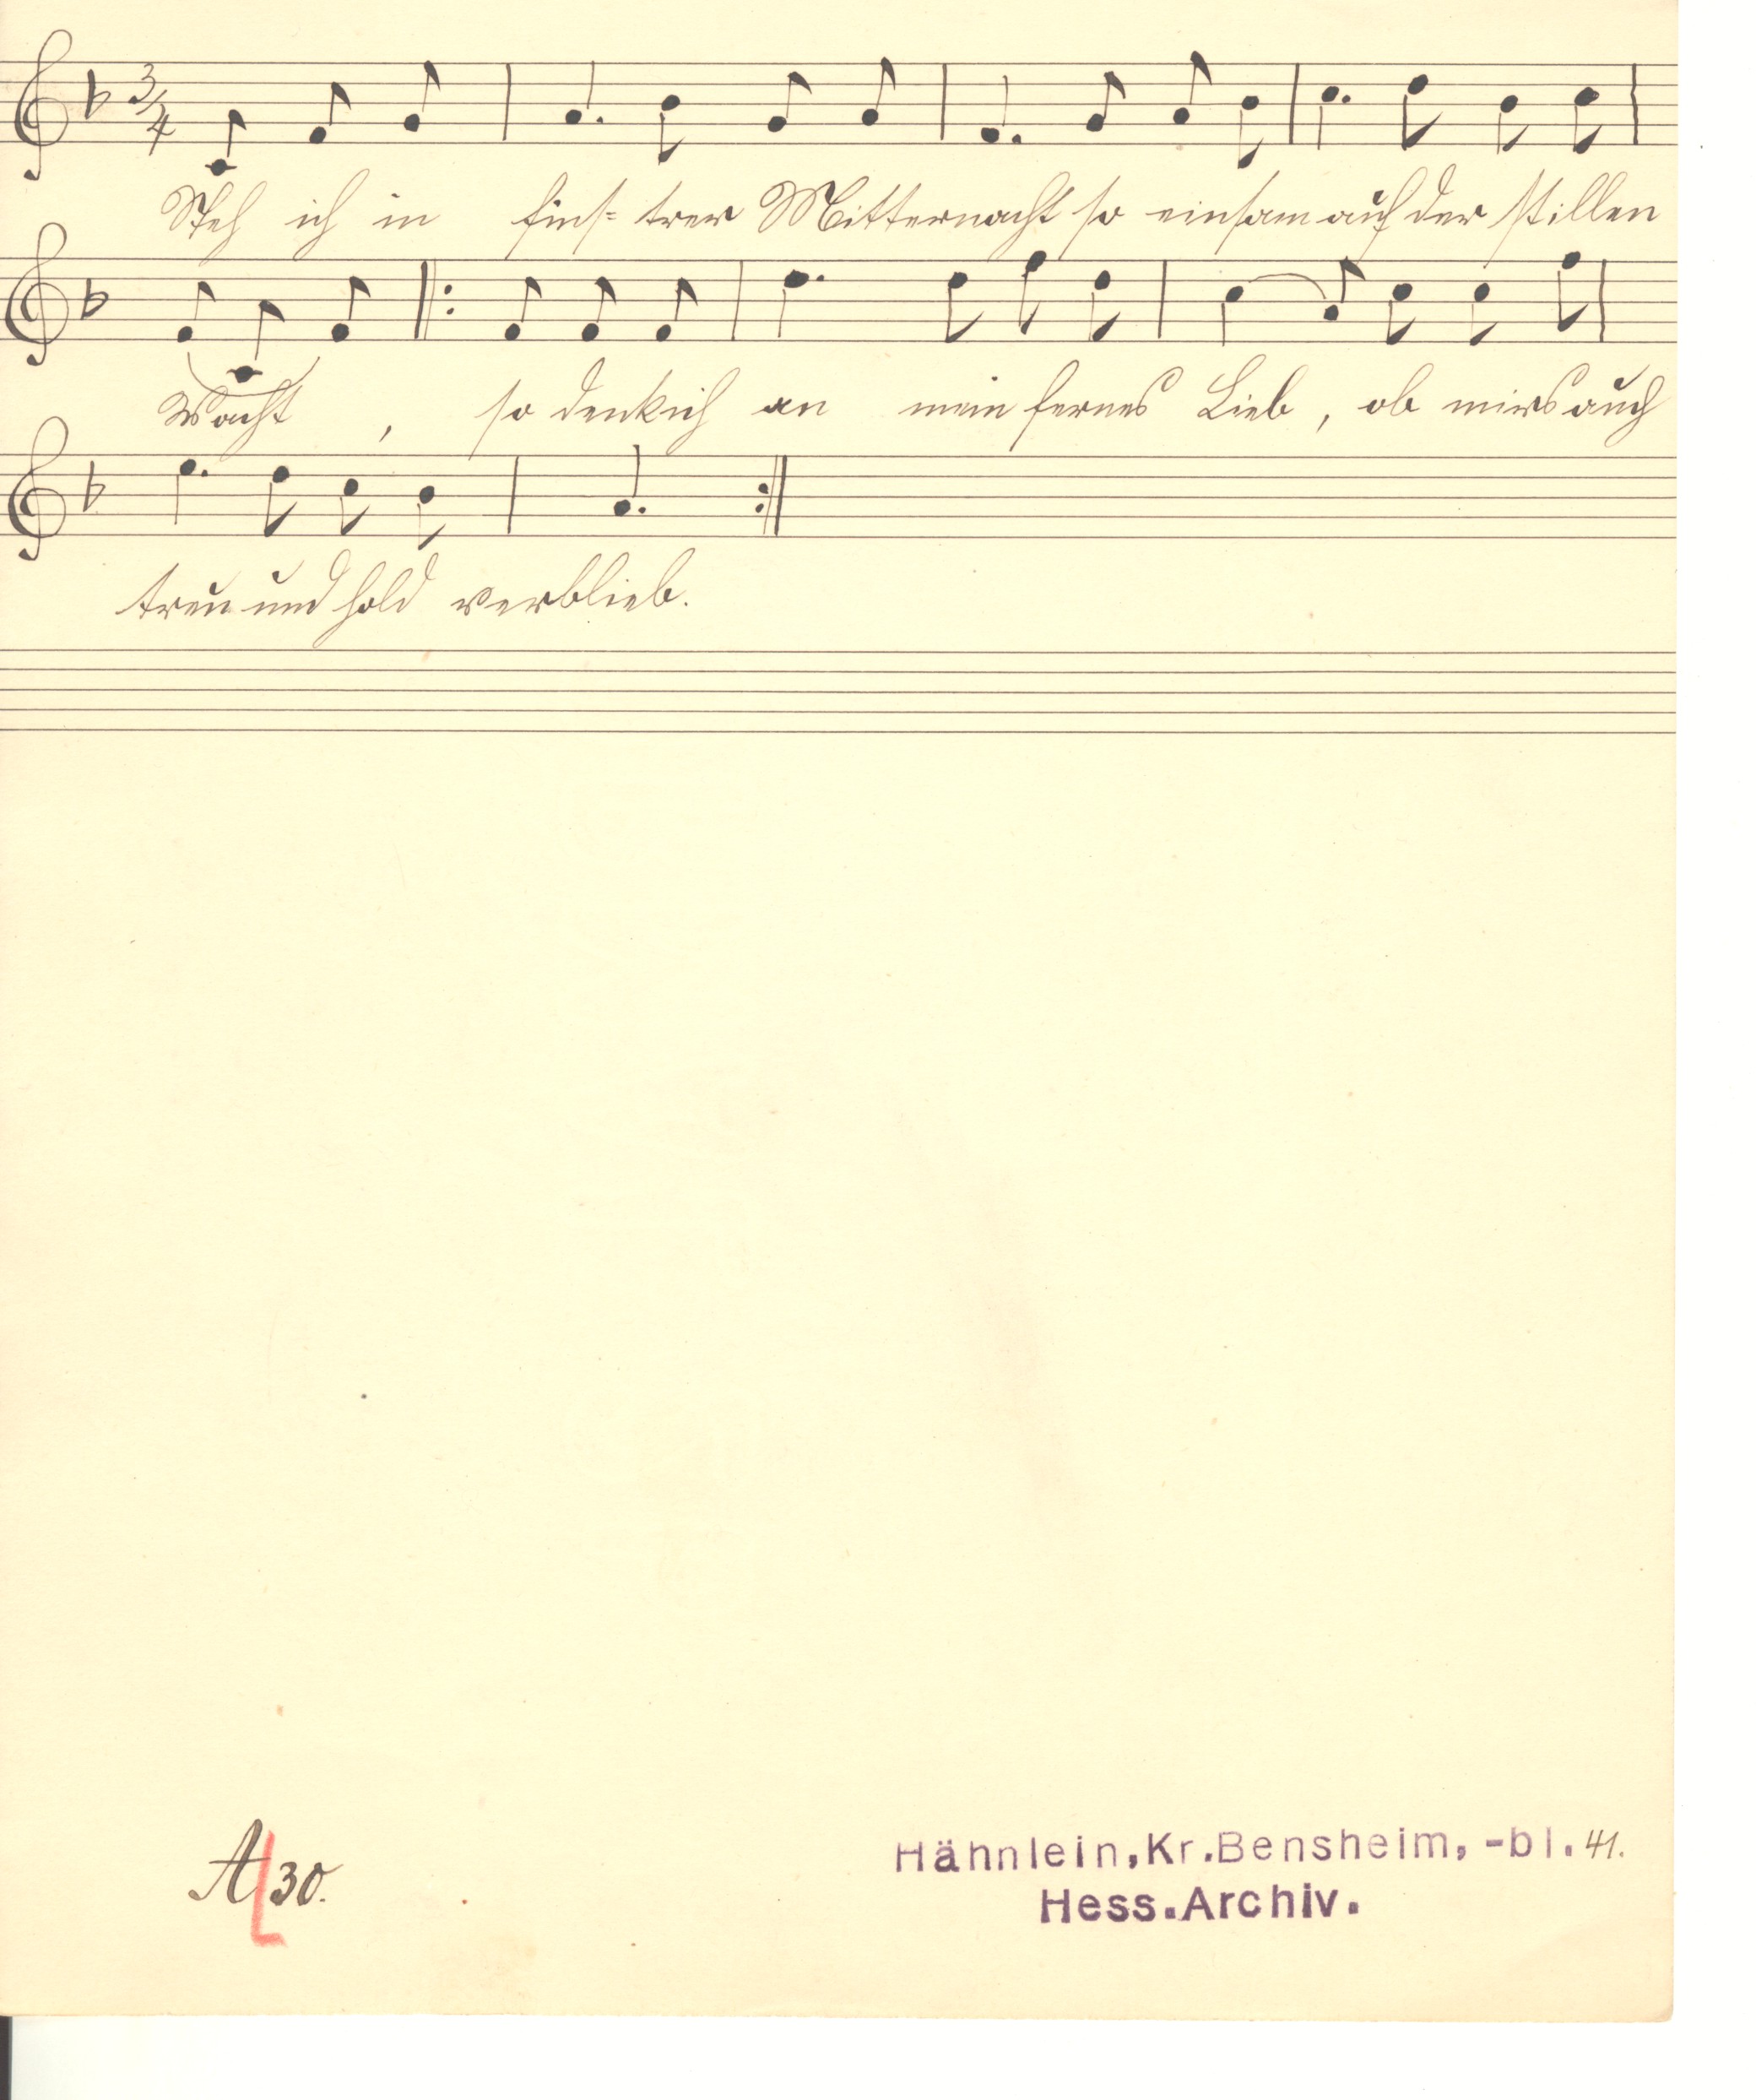 3/4
Steh ich in fins= trer Mitternacht so einsam auf der stillen
Wacht , so denk ich an mein fernes Lieb , ob mirs auch
treu und hold verblieb.
A 30.
Hähnlein, Kr. Bensheim, -bl. 41.
Hess. Archiv.